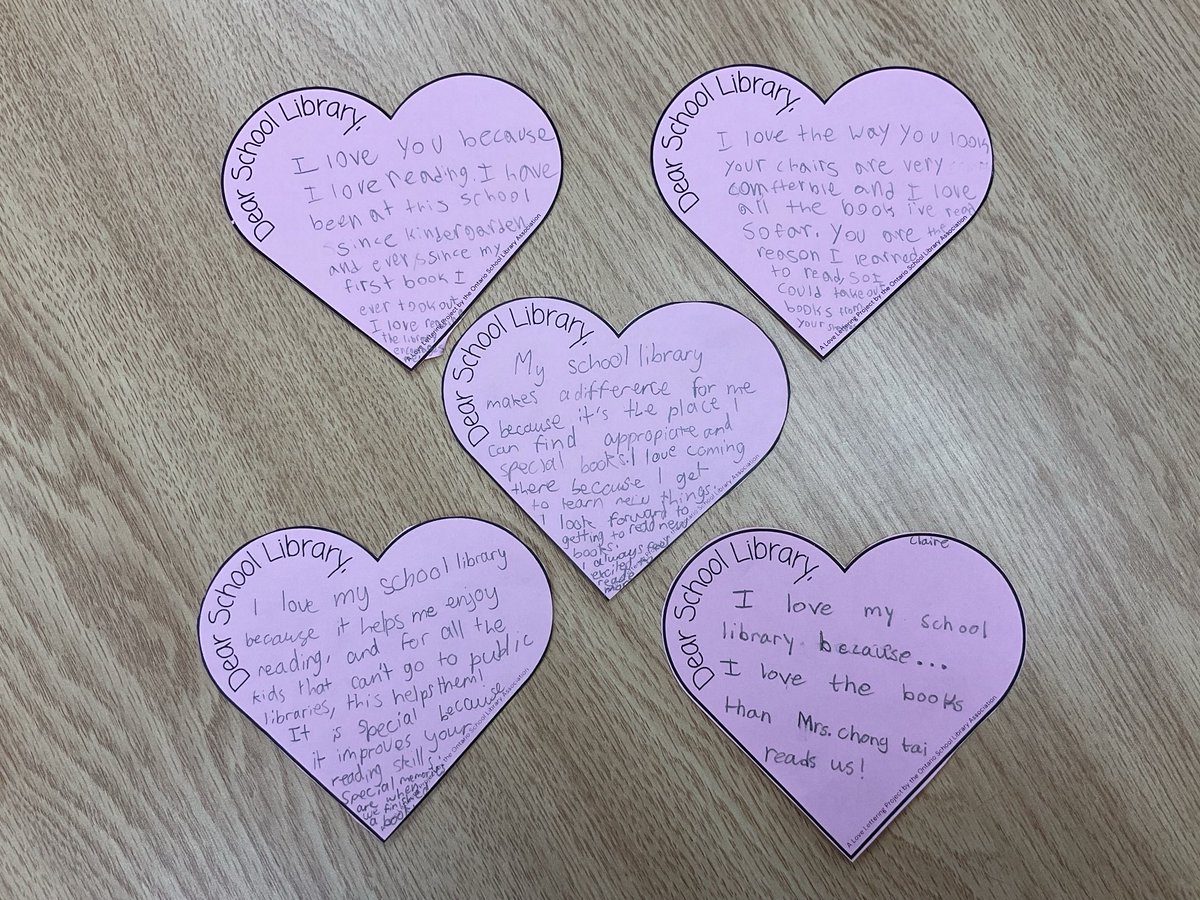 Dear School Library,
I love you because
I love reading. I have
been at this school
since kindergarden
and ever since my
first book I
ever took out
I love
the
A Love Lettering Project by the Ontario School Library Association
Dear School Library,
I love the way you look
your chairs are very
comfterble and I love
all the book i've read
so far. You are the
reason I learned
to read, so I
could take out
books from
your
A Love Lettering Project by the Ontario School Library Association
Dear School Library,
My school library
makes a difference for me
because it's the place I
can find appropiate and
special books. I love coming
there because I get
to learn new things.
I look forward to
getting to read new
books.
I always feel
excited
Ontario School Library Association
Dear School Library,
I love my school library
because it helps me enjoy
reading, and for all the
kids that can't go to public
libraries, this helps them!
It is special because
it improves your
reading skills.
Special memories
are when
we finished
a book
the Ontario School Library Association
Claire
Dear School Library,
I love my school
library because...
I love the books
than Mrs. chong tai
reads us!
A Love Lettering Project by the Ontario School Library Association